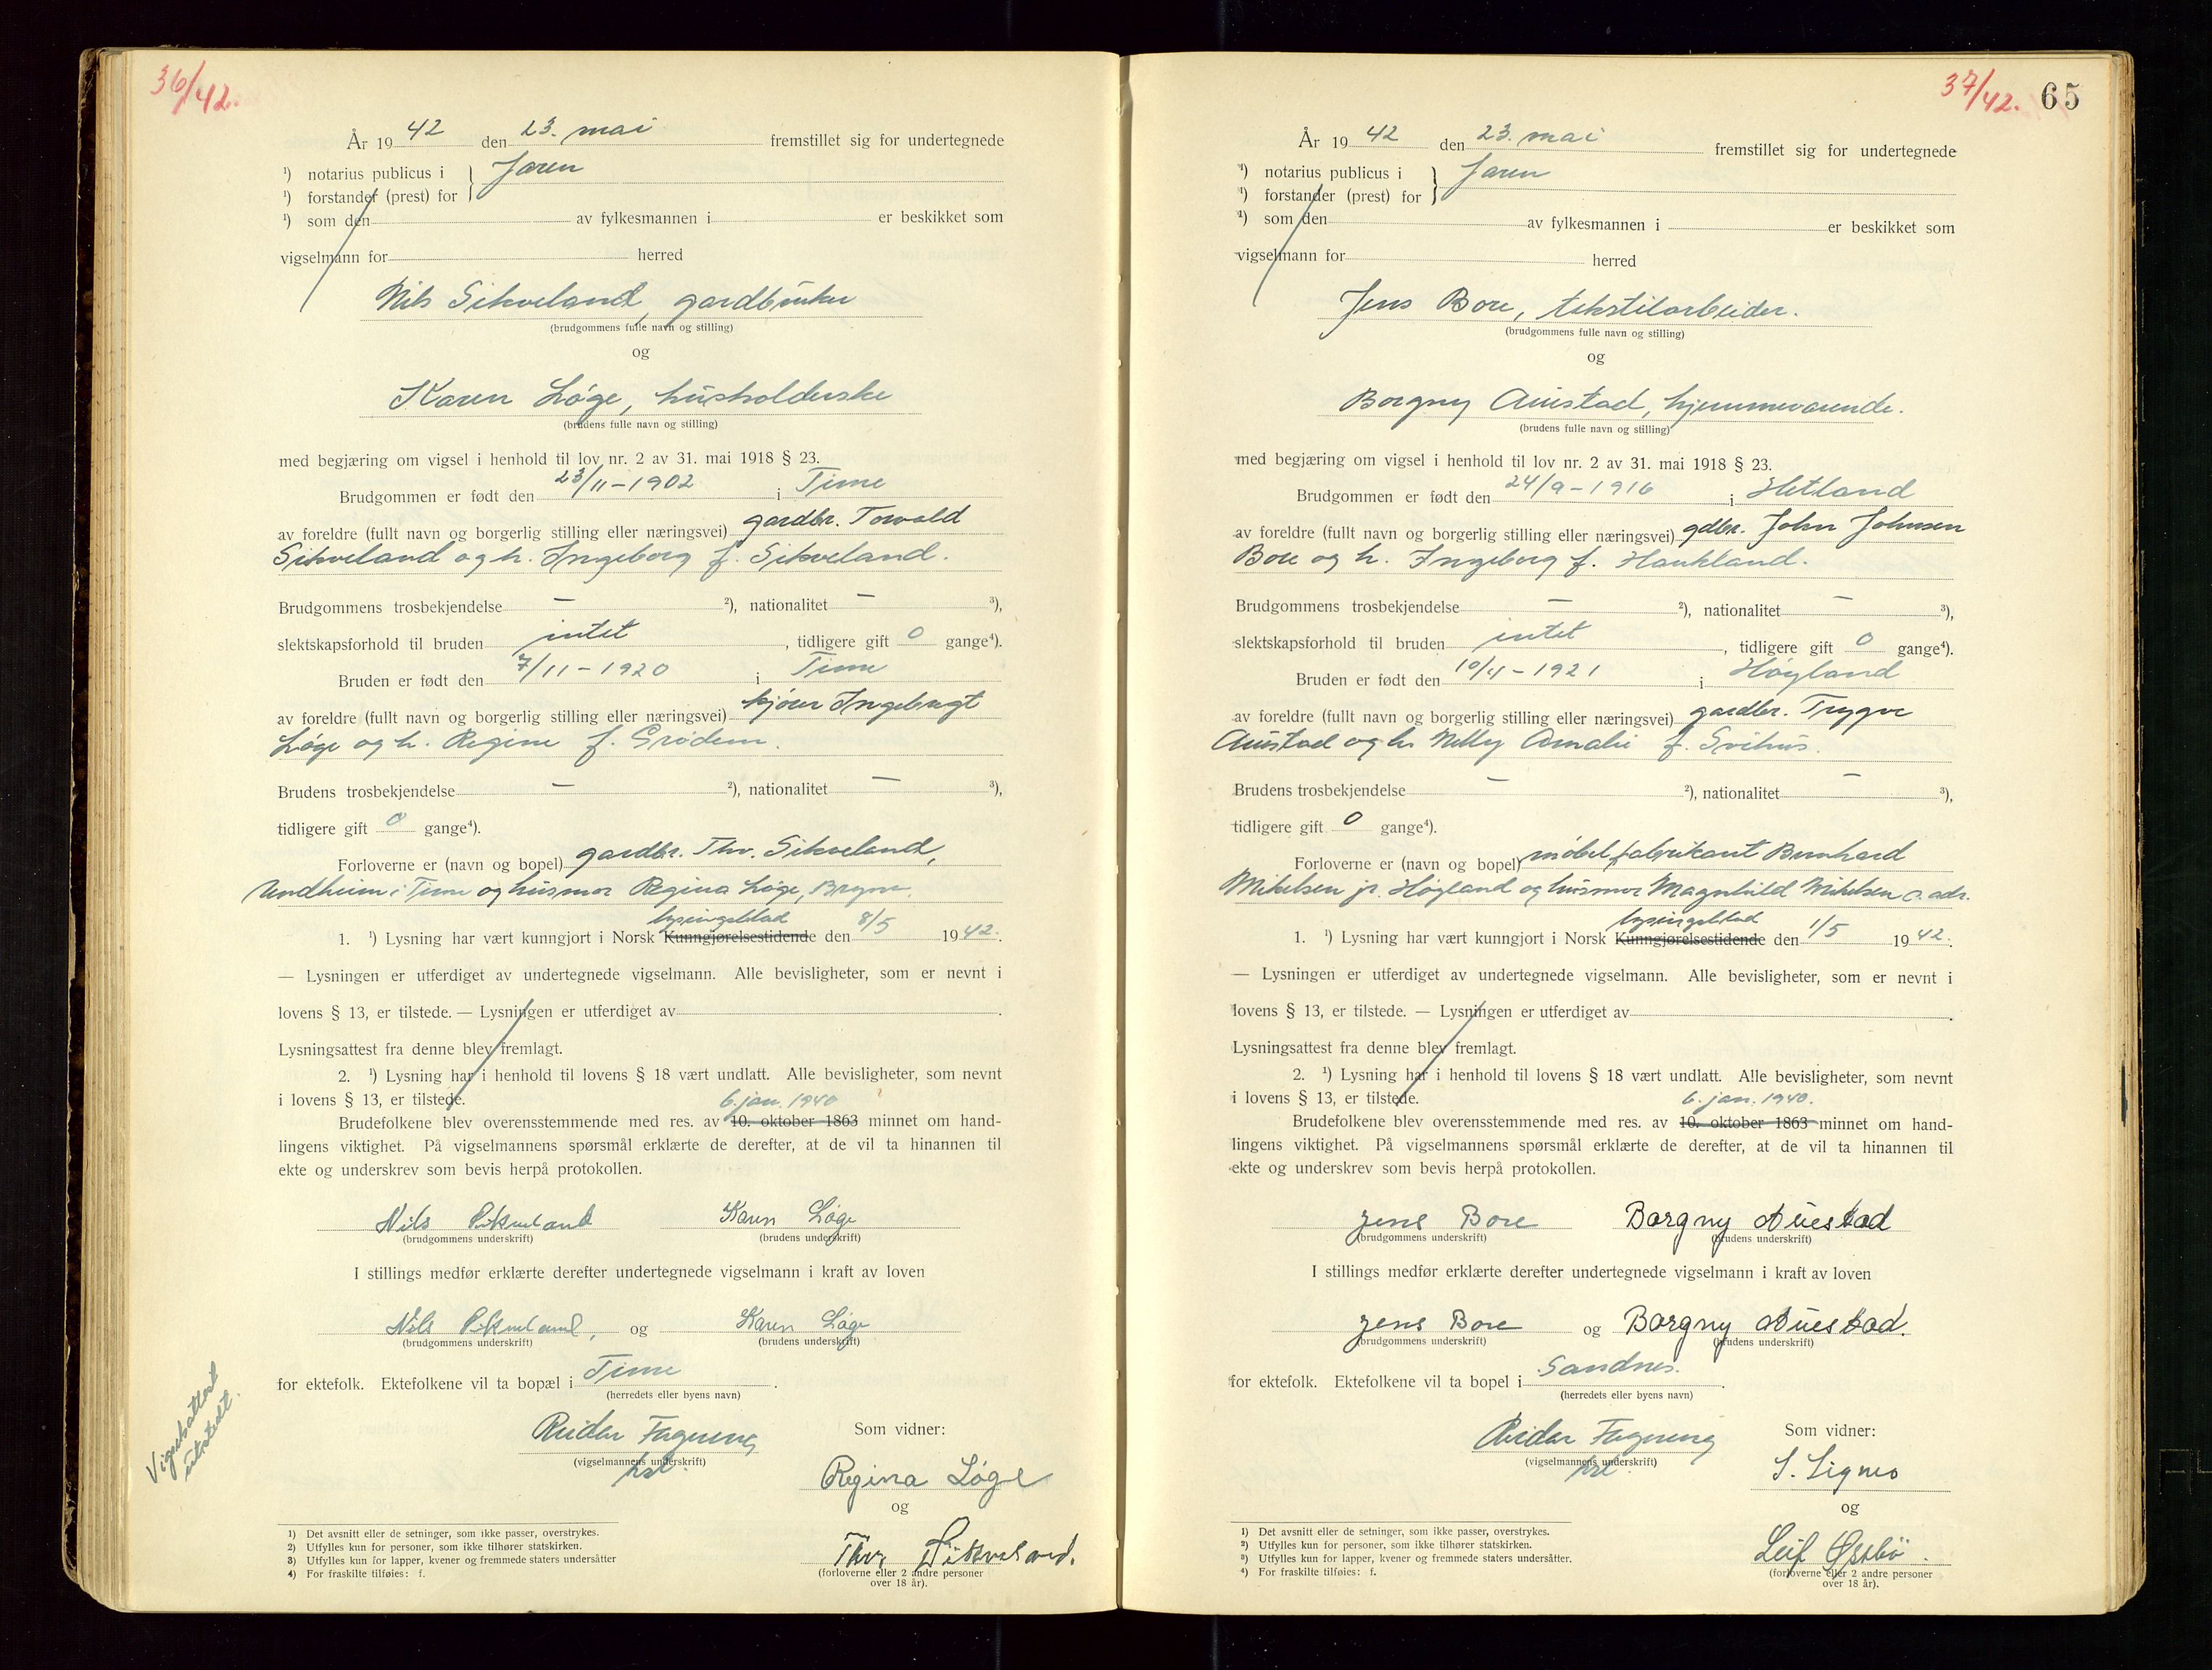 36/42.
År 19 42 den 23. mai fremstillet sig for undertegnede
¹) notarius publicus i } Jæren
¹) forstander (prest) for
¹) som den av fylkesmannen i er beskikket som
vigselmann for herred
Nils Sikveland, gardbruker
(brudgommens fulle navn og stilling)
og
Karen Løge, husholderske
(brudens fulle navn og stilling)
med begjæring om vigsel i henhold til lov nr. 2 av 31. mai 1918 § 23.
Brudgommen er født den 23/11-1902 i Time
av foreldre (fullt navn og borgerlig stilling eller næringsvei) gardbr. Torvald
Sikveland og h. Ingeborg f. Sikveland.
Brudgommens trosbekjendelse — ²), nationalitet — ³),
slektskapsforhold til bruden intet, tidligere gift 0 gange⁴).
Bruden er født den 7/11-1920 i Time
av foreldre (fullt navn og borgerlig stilling eller næringsvei) kjører Ingebregt
Løge og h. Regine f. Grødem.
Brudens trosbekjendelse — ²), nationalitet — ³),
tidligere gift 0 gange⁴).
Forloverne er (navn og bopel) gardbr. Thv. Sikveland,
Undheim i Time og husmor Regina Løge, Bryne.
lysingsblad
1. ¹) Lysning har vært kunngjort i Norsk Kunngjørelsestidende den 8/5 1942.
— Lysningen er utferdiget av undertegnede vigselmann. Alle bevisligheter, som er nevnt i
lovens § 13, er tilstede. — Lysningen er utferdiget av .
Lysningsattest fra denne blev fremlagt.
2. ¹) Lysning har i henhold til lovens § 18 vært undlatt. Alle bevisligheter, som nevnt
i lovens § 13, er tilstede.
6. jan. 1940
Brudefolkene blev overensstemmende med res. av 10. oktober 1863 minnet om hand-
lingens viktighet. På vigselmannens spørsmål erklærte de derefter, at de vil ta hinannen til
ekte og underskrev som bevis herpå protokollen.
Nils Sikveland Karen Løge
(brudgommens underskrift) (brudens underskrift)
I stillings medfør erklærte derefter undertegnede vigselmann i kraft av loven
Nils Sikveland, og Karen Løge
(brudgommens underskrift) (brudens underskrift)
for ektefolk. Ektefolkene vil ta bopæl i Time .
(herredets eller byens navn)
Vigselsattest
utstedt.
Reidar Fagnung
(vigselmannens underskrift)
Som vidner:
Regina Løge
og
Thv Sikveland.
(forloverne eller 2 andre personer
over 18 år).
1) Det avsnitt eller de setninger, som ikke passer, overstrykes.
2) Utfylles kun for personer, som ikke tilhører statskirken.
3) Utfylles kun for lapper, kvener og fremmede staters undersåtter
4) For fraskilte tilføies: f.
37/42. 65
År 19 42 den 23. mai fremstillet sig for undertegnede
¹) notarius publicus i } Jæren
¹) forstander (prest) for
¹) som den av fylkesmannen i er beskikket som
vigselmann for herred
Jens Bore, tekstilarbeider.
(brudgommens fulle navn og stilling)
og
Borgny Austad, hjemmeværende.
(brudens fulle navn og stilling)
med begjæring om vigsel i henhold til lov nr. 2 av 31. mai 1918 § 23.
Brudgommen er født den 24/9-1916 i Hetland
av foreldre (fullt navn og borgerlig stilling eller næringsvei) gdbr. John Johnsen
Bore og h. Ingeborg f. Haukland.
Brudgommens trosbekjendelse — ²), nationalitet — ³),
slektskapsforhold til bruden intet, tidligere gift 0 gange⁴).
Bruden er født den 10/4-1921 i Høyland
av foreldre (fullt navn og borgerlig stilling eller næringsvei) gardbr. Trygve
Austad og h. Nelly Amalie f. Svihus.
Brudens trosbekjendelse — ²), nationalitet — ³),
tidligere gift 0 gange⁴).
Forloverne er (navn og bopel) møbelfabrikant Bernhard
Mikelsen jr. Høyland og husmor Magnhild Mikelsen s. adr.
lysingsblad
1. ¹) Lysning har vært kunngjort i Norsk Kunngjørelsestidende den 1/5 1942.
— Lysningen er utferdiget av undertegnede vigselmann. Alle bevisligheter, som er nevnt i
lovens § 13, er tilstede. — Lysningen er utferdiget av .
Lysningsattest fra denne blev fremlagt.
2. ¹) Lysning har i henhold til lovens § 18 vært undlatt. Alle bevisligheter, som nevnt
i lovens § 13, er tilstede.
6. jan. 1940.
Brudefolkene blev overensstemmende med res. av 10. oktober 1863 minnet om hand-
lingens viktighet. På vigselmannens spørsmål erklærte de derefter, at de vil ta hinannen til
ekte og underskrev som bevis herpå protokollen.
Jens Bore Borgny Auestad
(brudgommens underskrift) (brudens underskrift)
I stillings medfør erklærte derefter undertegnede vigselmann i kraft av loven
Jens Bore og Borgny Auestad.
(brudgommens underskrift) (brudens underskrift)
for ektefolk. Ektefolkene vil ta bopel i Sandnes.
(herredets eller byens navn)
Reidar Fagnung
(vigselmannens underskrift)
Som vidner:
S. Signes
og
Leif Østbø.
(forloverne eller 2 andre personer
over 18 år).
1) Det avsnitt eller de setninger, som ikke passer, overstrykes.
2) Utfylles kun for personer, som ikke tilhører statskirken.
3) Utfylles kun for lapper, kvener og fremmede staters undersåtter.
4) For fraskilte tilføies: f.